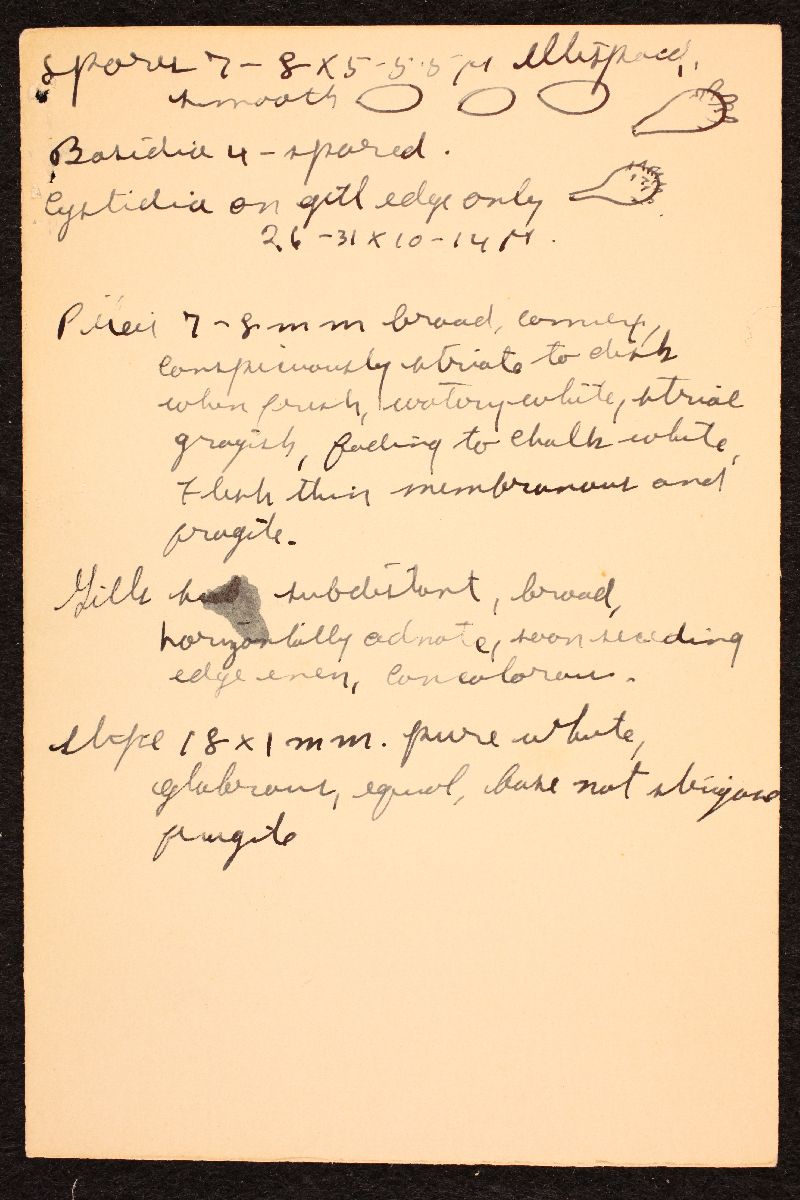 Spores 7-8 x 5-5.5 µ ellipsoid,
smooth
Basidia 4-spored.
Cystidia on gill edge only
26-31 x 10-14 µ.
Pileus 7-8 mm broad, convex,
conspicuously striate to disk
when fresh, watery-white, striae
grayish, fading to chalk white,
Flesh thin membranous and
fragile.
Gills subdistant, broad,
horizontally adnate, soon seceding
edge even, concolorous.
Stipe 18 x 1 mm. pure white,
glabrous, equal, base not strigose
fragile